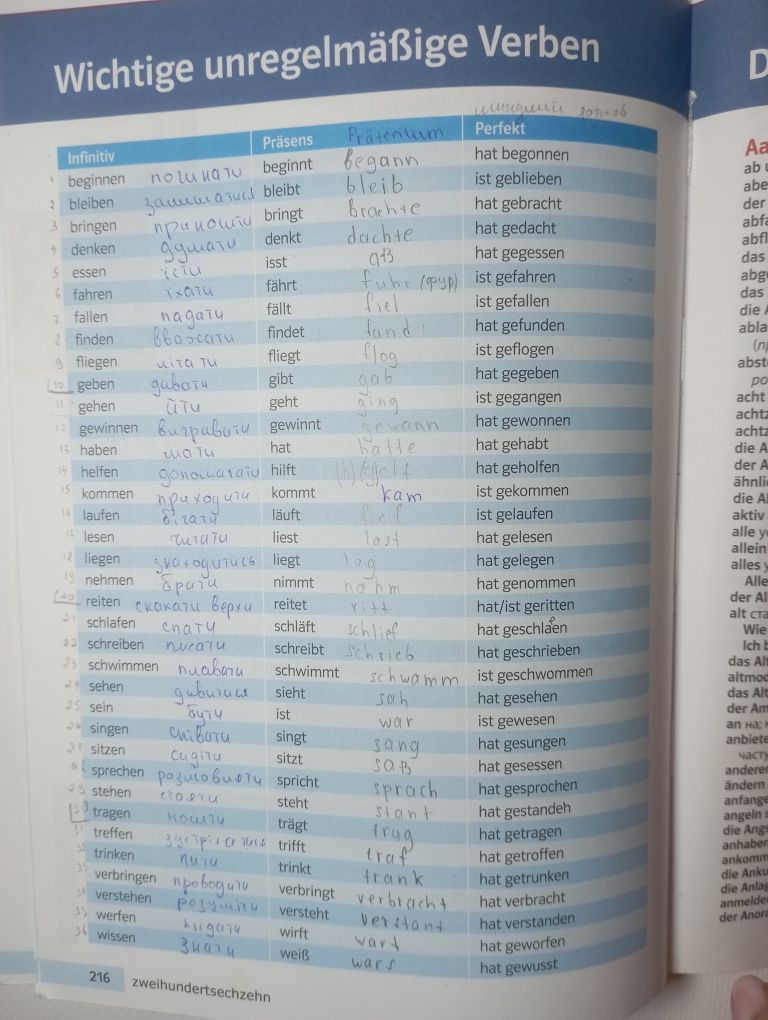 Wichtige unregelmäßige Verben
минулий
Infinitiv Präsens Präteritum Perfekt
1 beginnen починати beginnt begann hat begonnen
2 bleiben залишатись bleibt bleib ist geblieben
3 bringen приносити bringt brachte hat gebracht
4 denken думати denkt dachte hat gedacht
5 essen їсти isst aß hat gegessen
6 fahren їхати fährt fuhr (фур) ist gefahren
7 fallen падати fällt fiel ist gefallen
8 finden вважати findet fand hat gefunden
9 fliegen літати fliegt flog ist geflogen
10 geben давати gibt gab hat gegeben
11 gehen йти geht ging ist gegangen
12 gewinnen вигравати gewinnt gewann hat gewonnen
13 haben мати hat hatte hat gehabt
14 helfen допомагати hilft hat geholfen
15 kommen приходити kommt kam ist gekommen
16 laufen бігати läuft ist gelaufen
17 lesen читати liest last hat gelesen
18 liegen знаходитись liegt lag hat gelegen
19 nehmen брати nimmt nahm hat genommen
20 reiten скакати верхи reitet ritt hat/ist geritten
21 schlafen спати schläft schlief hat geschlaen f
22 schreiben писати schreibt schrieb hat geschrieben
23 schwimmen плавати schwimmt schwamm ist geschwommen
24 sehen дивитися sieht sah hat gesehen
25 sein бути ist war ist gewesen
26 singen співати singt sang hat gesungen
27 sitzen сидіти sitzt saß hat gesessen
28 sprechen розмовляти spricht sprach hat gesprochen
29 stehen стояти steht stant hat gestandeh
30 tragen носити trägt trug hat getragen
31 treffen зустрічатись trifft traf hat getroffen
32 trinken пити trinkt trank hat getrunken
33 verbringen проводити verbringt verbracht hat verbracht
34 verstehen розуміти versteht verstant hat verstanden
35 werfen кидати wirft wart hat geworfen
36 wissen знати weiß wars hat gewusst
216 zweihundertsechzehn
D
Aa
ab
abe
der
abfa
abfl
das
abge
das
die A
abla
abst
po
acht
achtz
achtz
die A
der A
ähnli
die Al
aktiv
alle
allein
alles
Alle
der Al
alt ста
Wie
Ich b
das Alt
altmod
das Alt
der Am
an на;
anbiete
часту
anderer
ändern
anfange
angeln
die Angs
anhaben
ankomm
die Anku
die Anlag
anmelde
der Anora